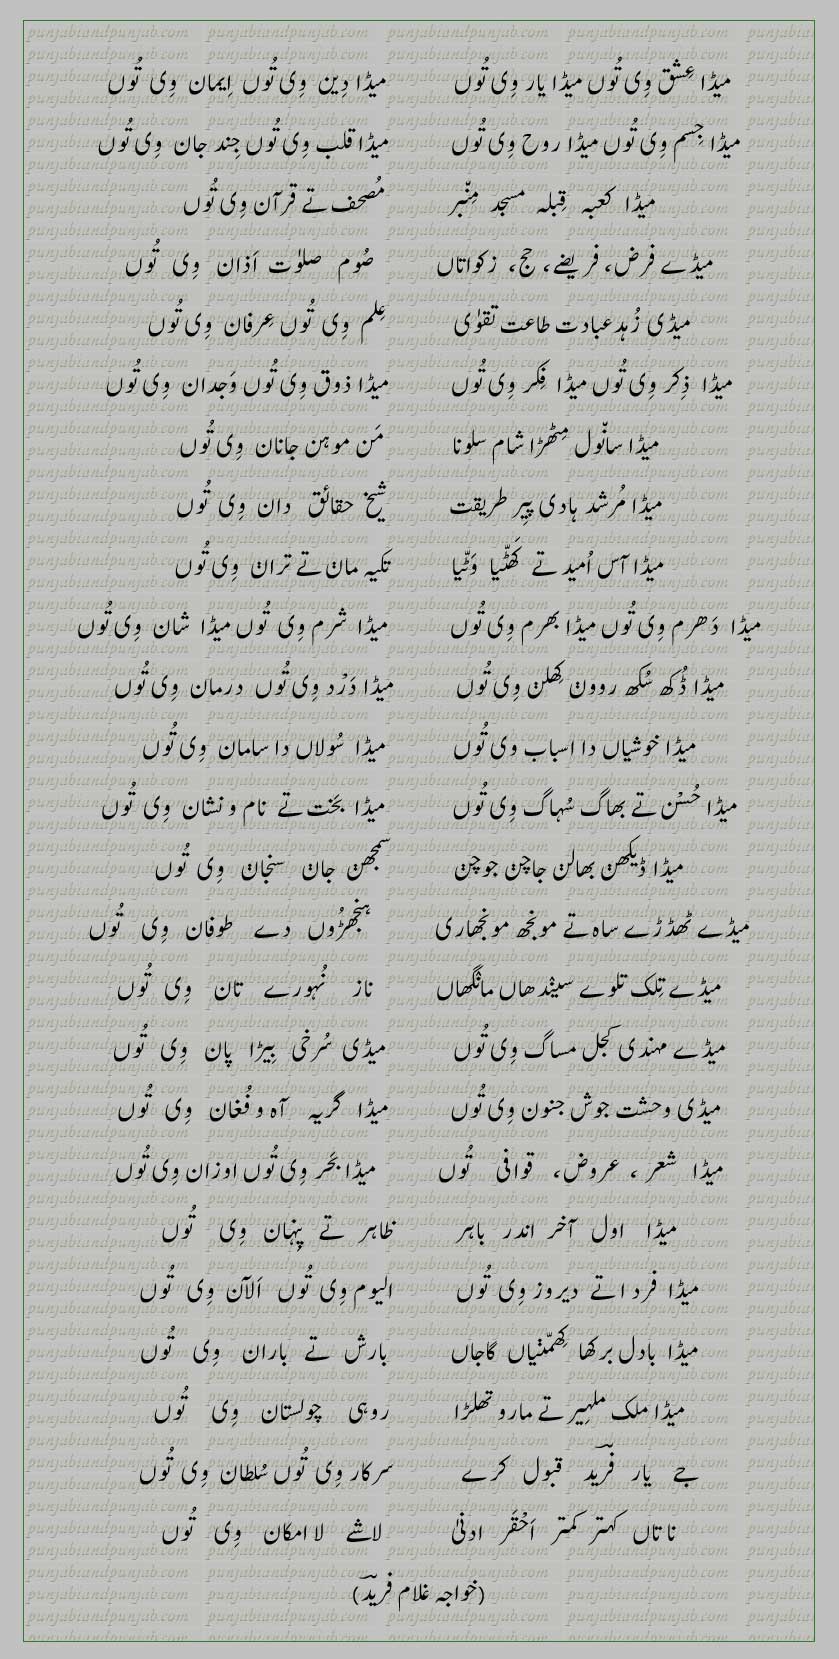 میڈا عِشق وِی تُوں میڈا یار وِی تُوں میڈا دِین وِی تُوں اِیمان وِی تُوں
میڈا جِسم وِی تُوں میڈا روح وِی تُوں میڈا قلب وِی تُوں جِند جان وِی تُوں
میڈا کعبہ قِبلہ مسجد مِنّبر مُصحف تے قرآن وِی تُوں
میڈے فرض، فریضے، حج، زکواتاں صُوم صلوٰت اَذان وِی تُوں
میڈی زُہد عبادت طاعت تقوٰی عِلم وِی تُوں عِرفان وِی تُوں
میڈا ذِکر وِی تُوں میڈا فِکر وِی تُوں میڈا ذوق وِی تُوں وَجدان وِی تُوں
میڈا سانّول مِٹھڑا شام سلونا مَن موہن جانان وِی تُوں
میڈا مُرشد ہادی پِیر طریقت شیخ حقائق دان وِی تُوں
میڈا آس اُمید تے کَھٹّیا وَٹّیا تکیہ مان تے تران وِی تُوں
میڈا دَھرم وِی تُوں میڈا بھرم وِی تُوں میڈا شرم وِی تُوں میڈا شان وِی تُوں
میڈا ڈُکھ سُکھ روون کِھلن وِی تُوں میڈا دَرْد وِی تُوں درمان وِی تُوں
میڈا خوشیاں دا اسباب وی تُوں میڈا سُولاں دا سامان وِی تُوں
میڈا حُسْن تے بھاگ سُہاگ وِی تُوں میڈا بَخت تے نام و نشان وِی تُوں
میڈا ڈیکھن بھالن جاچن جوچن سمجھن جان سنجان وِی تُوں
میڈے ٹھڈڑے ساہ تے مونجھ مونجھاری ہنجھڑُوں دے طوفان وِی تُوں
میڈے تِلک تلوے سیندھاں مانگھاں ناز نُہورے تان وِی تُوں
میڈے مہندی کجل مساگ وِی تُوں میڈی سُرخی بِیڑا پان وِی تُوں
میڈی وحشت جوش جنون وِی تُوں میڈا گریہ آہ و فُغان وِی تُوں
میڈا شعر ، عروض، قوافی تُوں میڈا بَحر وِی تُوں اوزان وِی تُوں
میڈا اول آخر اندر باہر ظاہر تے پِنہان وِی تُوں
میڈا فردا تے دیروز وِی تُوں الیوم وِی تُوں اَلآن وِی تُوں
میڈا بادل برکھا کِھمّنیاں گاجاں بارش تے باران وِی تُوں
میڈا ملک ملہِیر تے مارو تھلڑا روہی چولستان وِی تُوں
جے یار فرید قبول کرے سرکار وِی تُوں سُلطان وِی تُوں
ناتاں کہتر کمتر اَحْقَر ادنیٰ لاشے لا امکان وِی تُوں
(خواجہ غلام فرید)